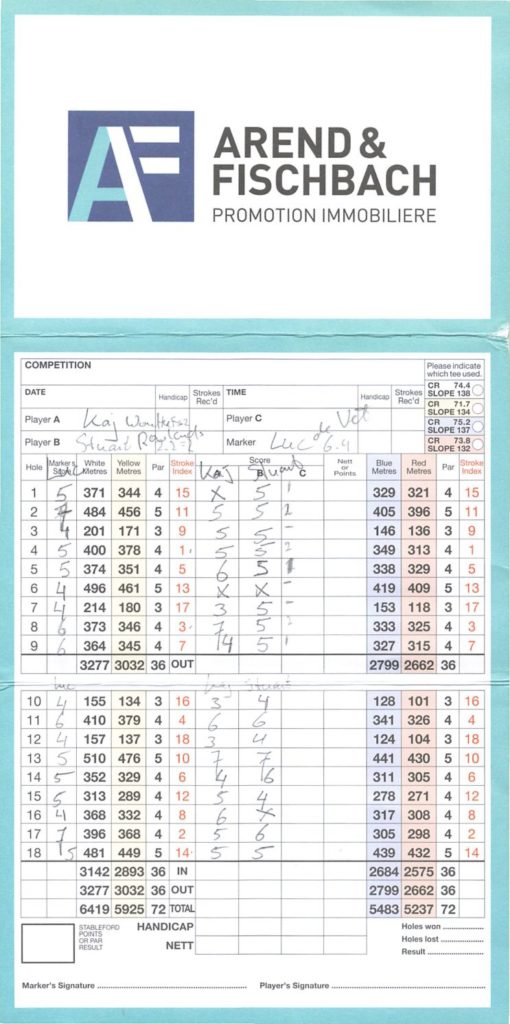 AF
AREND &
FISCHBACH
PROMOTION IMMOBILIERE
COMPETITION
Please indicate
which tee used.
CR 74.4
SLOPE 138
CR 71.7
SLOPE 134
CR 75.2
SLOPE 137
CR 73.8
SLOPE 132
DATE Handicap Strokes Rec'd TIME Handicap Strokes Rec'd
Player A Kaj Player C
Player B Stuart Rowlands Marker Luc de Vet 6.4
Hole Marker's Score White Metres Yellow Metres Par Stroke Index Kaj A Score Stuart B C Nett or Points Blue Metres Red Metres Par Stroke Index
1 5 371 344 4 15 X 5 1 329 321 4 15
2 7 484 456 5 11 5 5 2 405 396 5 11
3 4 201 171 3 9 5 5 - 146 136 3 9
4 5 400 378 4 1 5 5 2 349 313 4 1
5 5 374 351 4 5 6 5 1 338 329 4 5
6 4 496 461 5 13 X X - 419 409 5 13
7 4 214 180 3 17 3 5 - 153 118 3 17
8 6 373 346 4 3 7 5 2 333 325 4 3
9 6 364 345 4 7 4 5 1 327 315 4 7
3277 3032 36 OUT 2799 2662 36
Luc Kaj Stuart
10 4 155 134 3 16 3 4 128 101 3 16
11 6 410 379 4 4 6 6 341 326 4 4
12 4 157 137 3 18 3 4 124 104 3 18
13 5 510 476 5 10 7 7 441 430 5 10
14 5 352 329 4 6 4 6 311 305 4 6
15 5 313 289 4 12 5 4 278 271 4 12
16 4 368 332 4 8 6 X 317 308 4 8
17 7 396 368 4 2 5 6 305 298 4 2
18 5 481 449 5 14 5 5 439 432 5 14
3142 2893 36 IN 2684 2575 36
3277 3032 36 OUT 2799 2662 36
6419 5925 72 TOTAL 5483 5237 72
STABLEFORD
POINTS
OR PAR
RESULT
HANDICAP
NETT
Holes won
Holes lost
Result
Marker's Signature Player's Signature